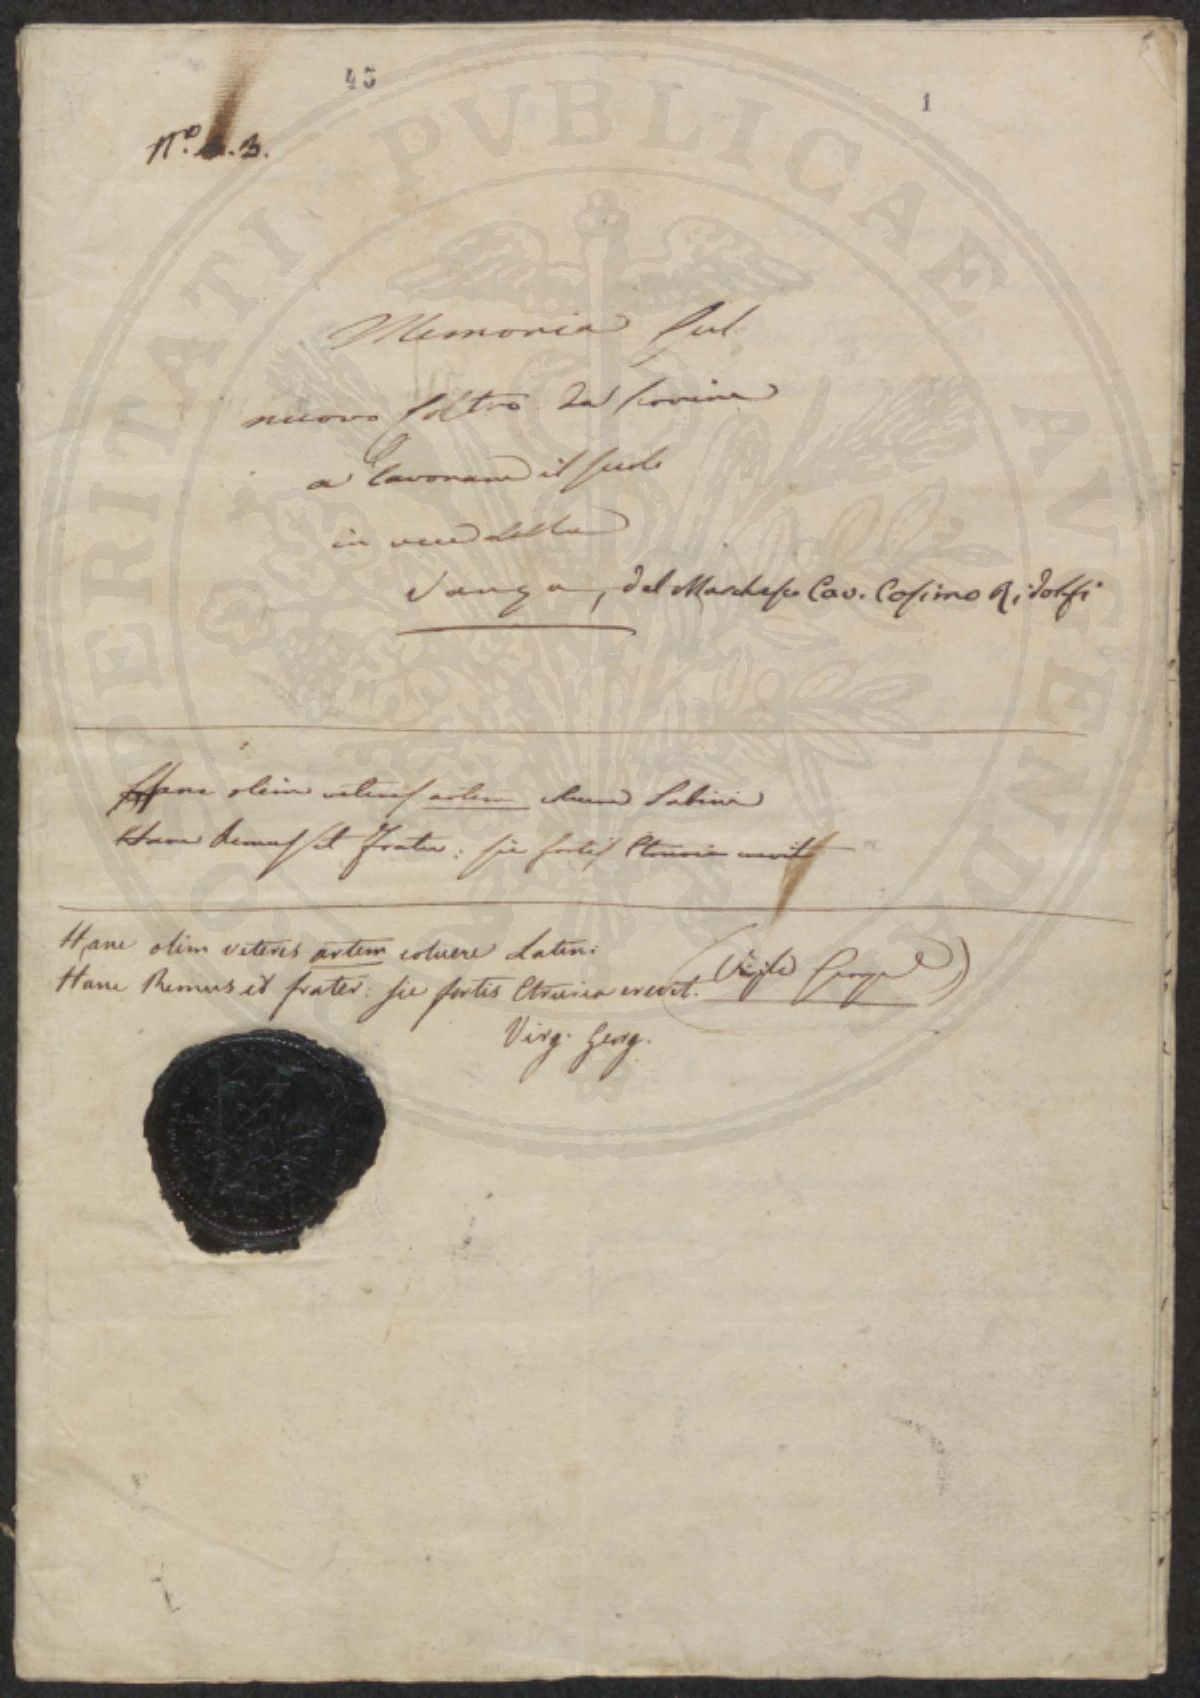 45
1
N.º 3.
Memoria sul
nuovo coltro da servire
a lavorare il suolo
in vece della
Vanga, del Marchese Cav. Cosimo Ridolfi
Hanc olim veteres artem Sabini
Hanc Remus et frater: sic fortis Etruria crevit
Hanc olim veteres artem coluere Latini
Hanc Remus et frater: sic fortis Etruria crevit. (Virgilio Georg.)
Virg. Georg.
PROSPERITATI PVBLICAE AVGENDAE